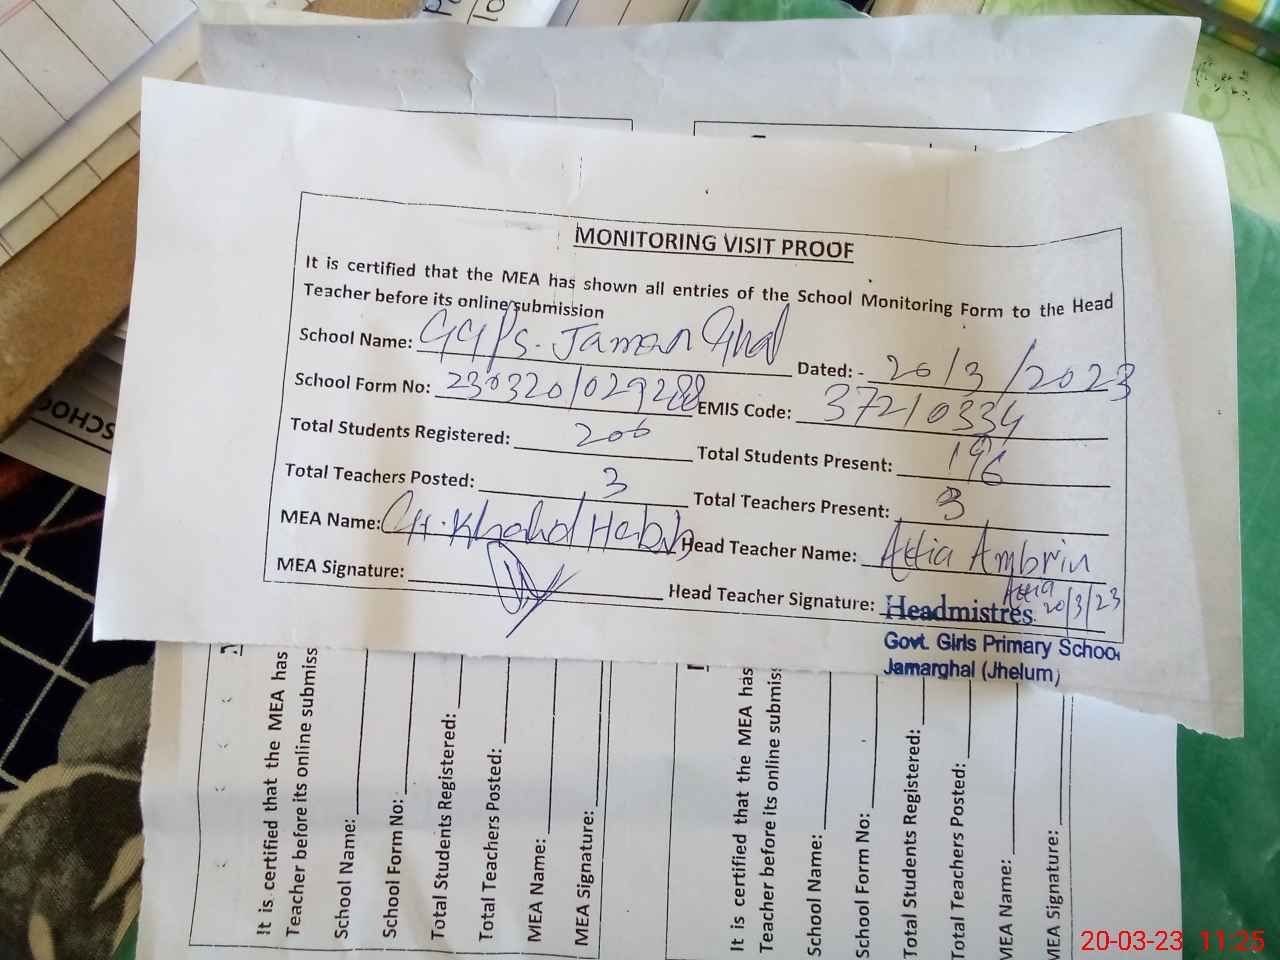 MONITORING VISIT PROOF
It is certified that the MEA has shown all entries of the School Monitoring Form to the Head
Teacher before its online submission
School Name: GGPS. Jamar Ghal Dated: - 20/3/2023
School Form No: 230320/029288 EMIS Code: 37210334
Total Students Registered: 206 Total Students Present: 196
Total Teachers Posted: 3 Total Teachers Present: 3
MEA Name: CH. Khalid Habib Head Teacher Name: Attia Ambrin
MEA Signature: Head Teacher Signature: Attia 20/3/23
Headmistres
Govt. Girls Primary School
Jamarghal (Jhelum)
It is certified that the MEA has
Teacher before its online submiss
School Name:
School Form No:
Total Students Registered:
Total Teachers Posted:
MEA Name:
MEA Signature:
It is certified that the MEA has
Teacher before its online submiss
School Name:
School Form No:
Total Students Registered:
Total Teachers Posted:
MEA Name:
MEA Signature:
20-03-23 11:25